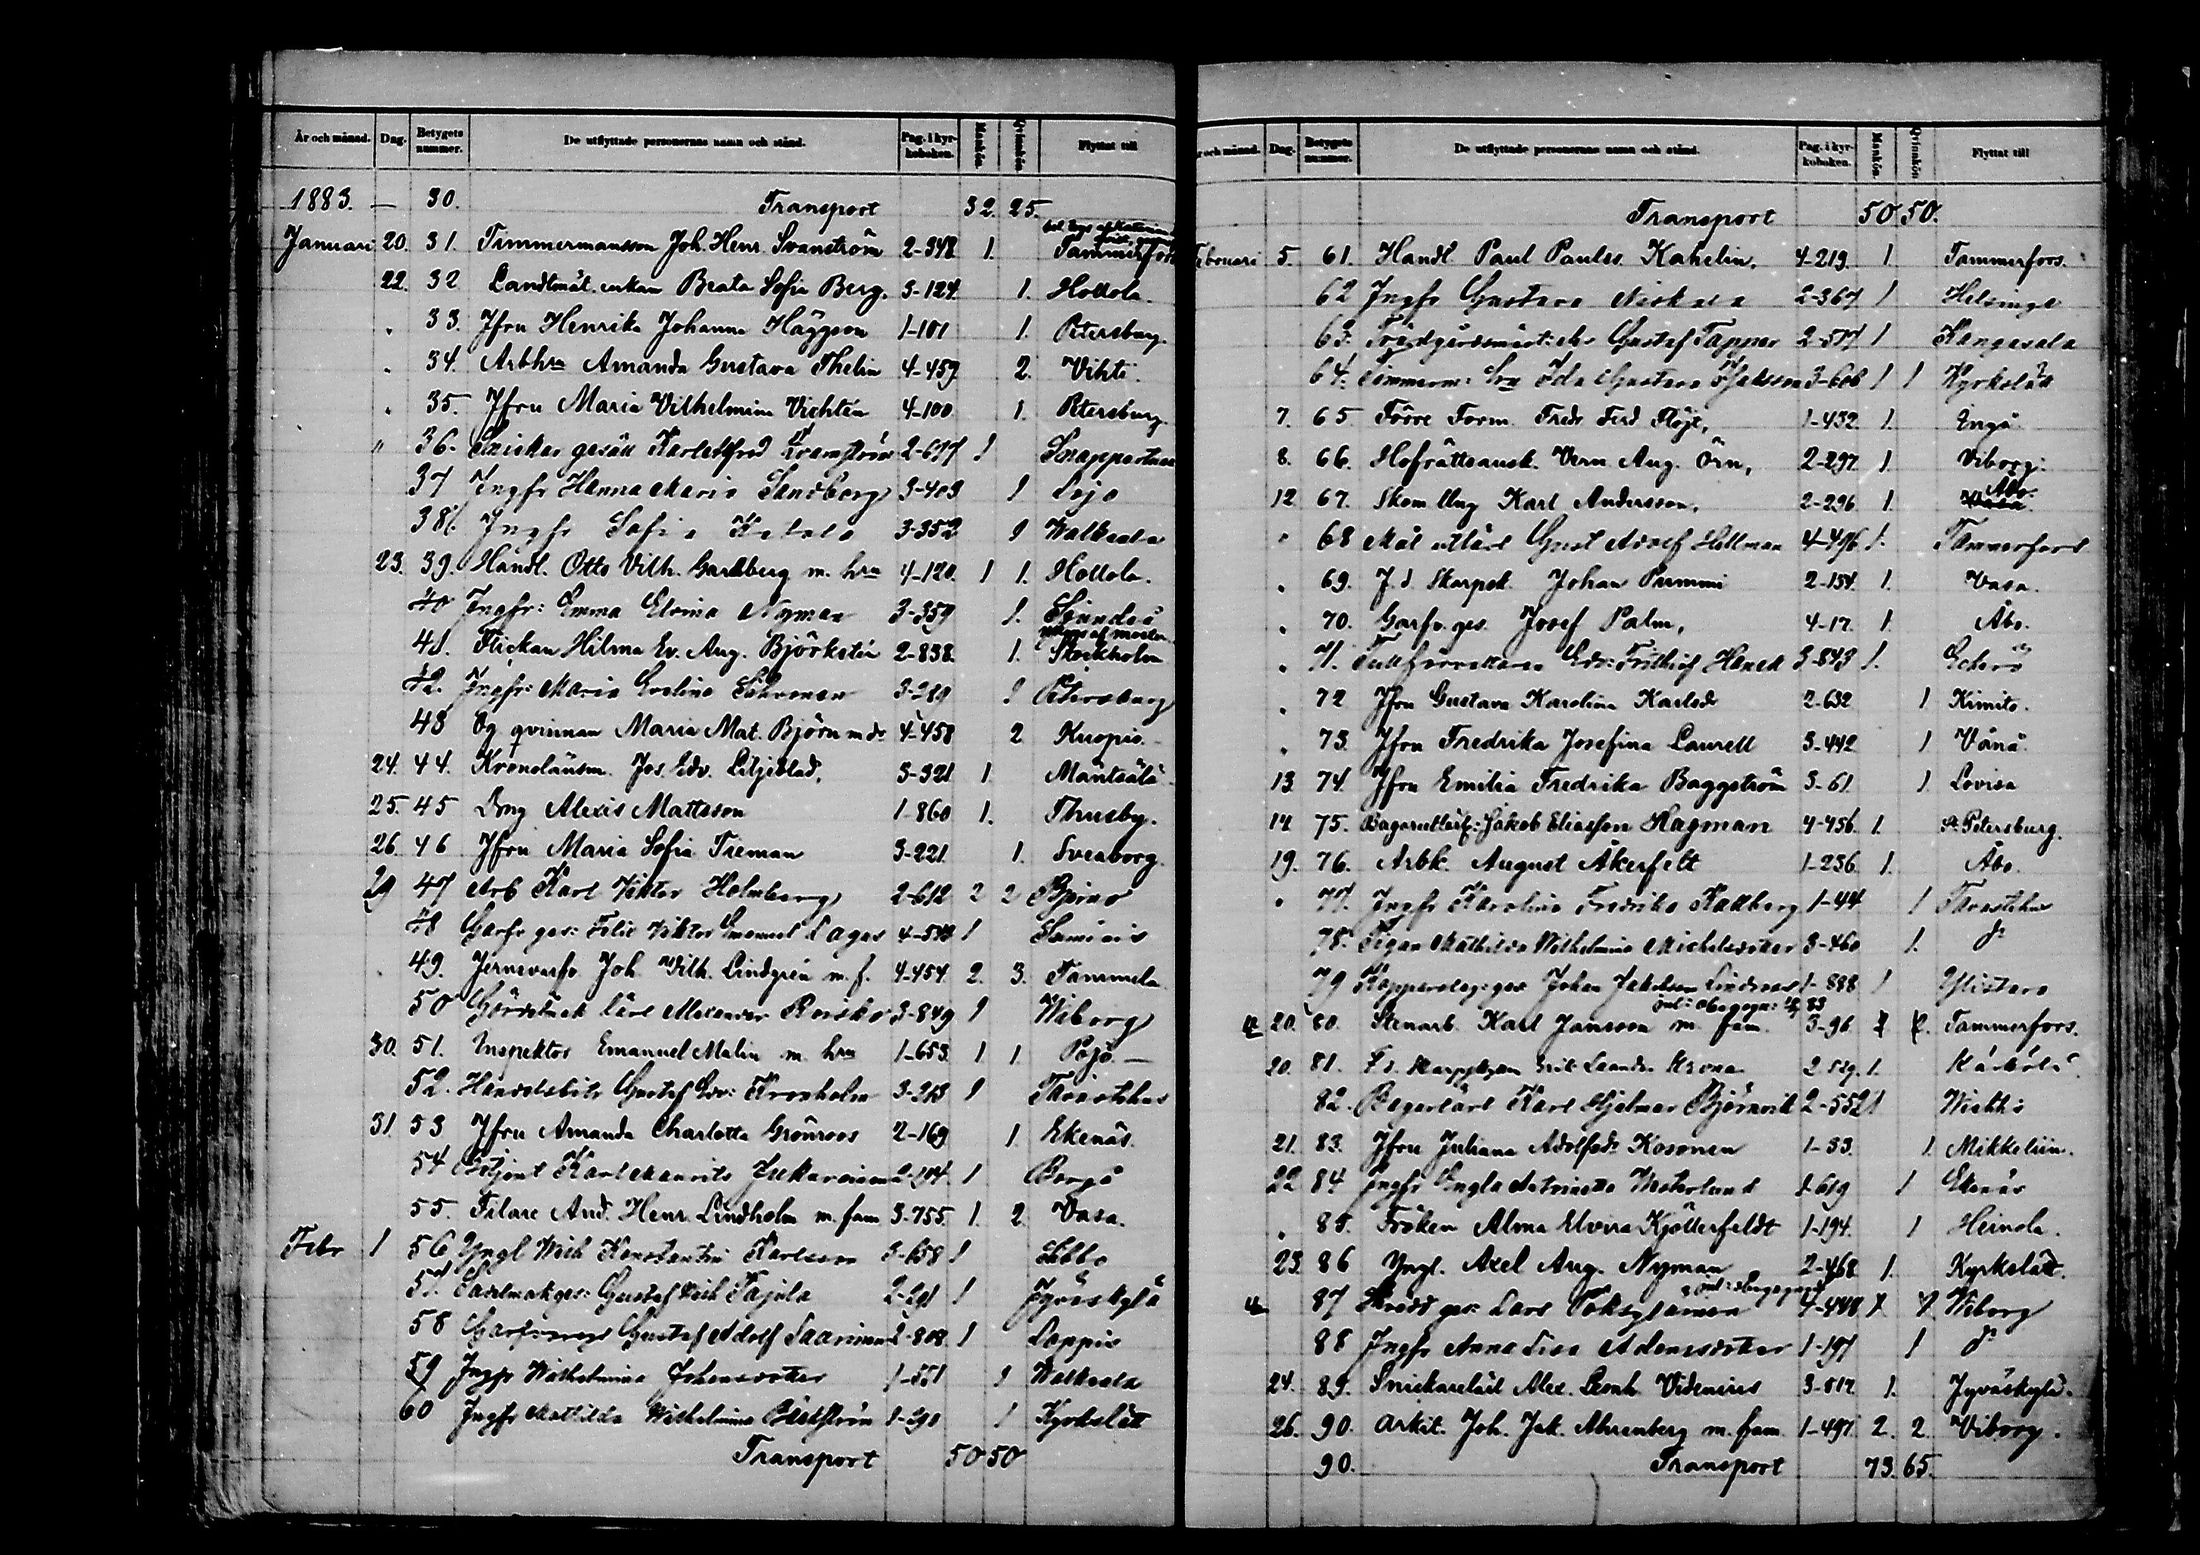 År och månad. Dag. Betygets nummer. De utflyttade personernas namn och stånd. Pag. i kyrkoboken. Mankön. Qvinnkön. Flyttat till
1883. — 30. Transport 32. 25.
Januari 20. 31. Timmermansson Joh. Henr. Svanström 2-348 1. Tammerfors
22. 32 Landtmät. enkan Beata Sofia Berg. 3-124. 1. Hollola.
" 33. Jfru Henrika Johanna Häggson 1-101 1. Petersburg.
" 34. Arbhru Amanda Gustava Thelin 4-459 2. Vihti.
" 35. Jfru Maria Vilhelmina Vichtén 4-100 1. Petersburg.
" 36. Snickar gesäll Karl Alfred 2-677 1
37 Ingfr Hanna Maria Sandberg 3-403 1 Lojo
38. Ingfr Sofia 3-352 1 Walkeala
23. 39. Handl. Otto Vilh. Gardberg m. hru 4-120. 1 1. Hollola.
40 Ingfr: Emma Elvina Nyman 3-359 1. Sjundeå
41. Flickan Hilma Ev. Aug. Björkstén 2-838. 1. Stockholm
42. Ingfr: Maria Evelina 3-289 1 Petersburg
43 Eg qvinnan Maria Mat. Björn m dr 4-458 2 Kuopio.
24. 44. Kronolänsm. Jos. Edv. Liljeblad. 3-321 1. Mäntsälä
25. 45 Dräng Alexis Mattsson 1-860 1. Thusby.
26. 46 Jfru Maria Sofia Treman 3-221. 1. Sveaborg.
29 47 Arb Karl Viktor Holmberg 2-612 2 2 Bjerno
48 Garfv ges: Felix Viktor Emanuel Lagus 4-543 1
49. Jernvarfv Joh. Vilh. Lindgrén m. f. 4-454. 2. 3. Tammela
50 lärl Alexander 3-849 1 Wiborg
30. 51. Inspektor Emanuel Malin m hru 1-653. 1 1. Pojo. —
52. Handelsbitr Gustaf Edv: Kronholm 3-213 1 Tavastehus
31. 53 Jfru Amanda Charlotta Grönroos 2-169 1 Ekenäs.
54 Betjent Karl Maurits 2-104. 1 Borgå
55. Filare And. Henr. Lindholm m. fam 3-755. 1. 2. Vasa.
Febr 1 56 Yngl Wilh Konstantin Karlsson 3-658 1 Esbo
57. Sadelmakges: Gustaf Wilh Tajela 2-291 1 Jyväskylä
58 Gustaf Adolf Saarinen 2-808 1 Lappvi
59 Ingfr Wilhelmina Johansdotter 1-551 1 Walkeala
60 Ingfr Mathilda Wilhelmina Bäckström 1-290 1 Kyrkslätt
Transport 50 50
År och månad. Dag. Betygets nummer. De utflyttade personernas namn och stånd. Pag. i kyrkoboken. Mankön. Qvinnkön. Flyttat till
Transport 50. 50.
Februari 5. 61. Handl Paul Paulss. Kahelin. 4-219. 1. Tammerfors.
62 Ingfr Gustava 2-367 1 Helsinge
63. Trädgårdsmäst: Gustaf Tapper 2-517 1 Kangasala
64. Timmerm: hru Ida Gustava 3-608 1 1 Kyrkslätt
7. 65 Förre Form. Fredr Ferd Flöjt, 1-432 1. Ingå
8. 66. Hofrättsausk. Vern Aug. Örn, 2-297. 1. Viborg.
12 67. Skom Ung Karl Andersson. 2-296 1. Åbo.
" 68 Mål utlärl Gust Adolf Hellman 4-496 1. Tammerfors
" 69. F. d. Skarpsk. Johan Pummi 2-154. 1. Vasa.
" 70. Garfv. ges. Josef Palm, 4-17. 1. Åbo.
" 71. Tullförvaltaren Edv: Frithiof Hanell 3-843 1. Eckerö
" 72 Jfru Gustava Karolina Karlsdr 2-632 1 Kimito.
" 73. Jfru Fredrika Josefina Laurell 3-442 1 Vånå.
13 74. Jfru Emilia Fredrika Baggström 3-61. 1 Lovisa
14. 75. Bagareutlärl: Jakob Eliasson Hagman 4-456. 1. St Petersburg.
19. 76. Arbk. August Åkerfelt 1-236. 1. Åbo.
" 77. Ingfr Karolina Fredrika Kallberg 1-44 1 Tavastehus
78. Pigan Mathilda Wilhelmina Michelsdotter 3-460 1. do
79 Kopparslag: ges Johan Jakobsson Lindroos 1-888 1 Ylistaro
20. 80. Stenarb. Karl Jansson m. fam. 3-96 Tammerfors.
20. 81. Erik Leander Krona 2 529. 1. Kärkölä
82. Bagarlärl Karl Hjalmar Björnvik 2-552 1 Wichtis
21. 83. Jfru Juliana Adolfsdr Kosonen 1-33. 1. Mikkeliin.
22 84 Ingfr Engla Katrinetta Westerlund 1-619 1 Ekenäs
" 85. Fröken Alma Elvira Kjöllerfeldt 1-194. 1 Heinola.
23. 86 Yngl. Axel Aug. Nyman 2-468. 1. Kyrkslätt.
87 Skrädd ges: Lars 4-448 Wiborg
88 Ingfr Anna Lisa Adamsdotter 1-197 1 do
24. 89. Snickarelärl Alex. Leonh. Videnius 3-817. 1. Jyväskylä.
26. 90. Arkit. Joh. Jak. Ahrenberg m. fam 1-497 2. 2. Viborg.
90. Transport 73. 65.